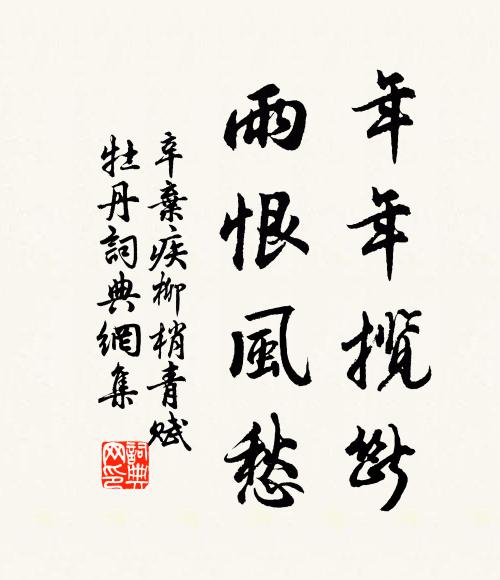 年年攬斷
雨恨風愁
辛棄疾柳梢青賦
牡丹詞典網集
詞典
网印